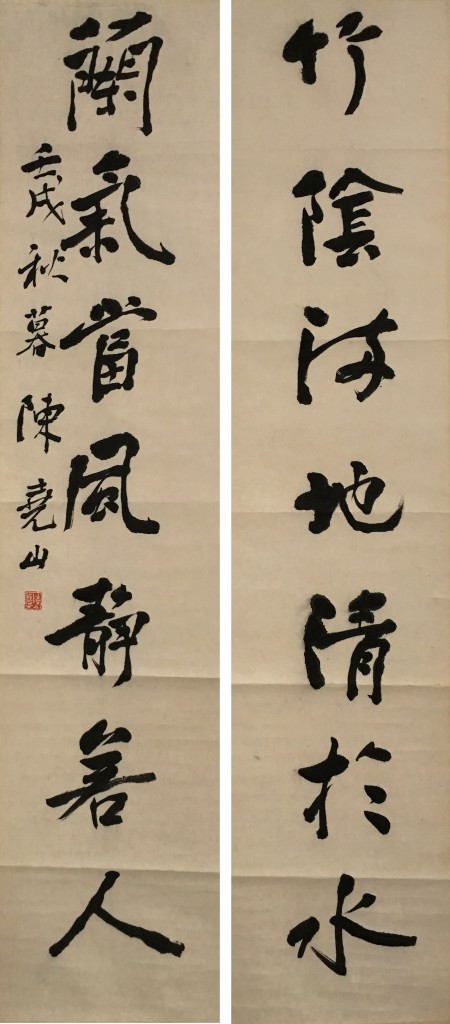 竹陰滿地清於水
蘭氣當風靜若人
壬戌秋暮陳堯山